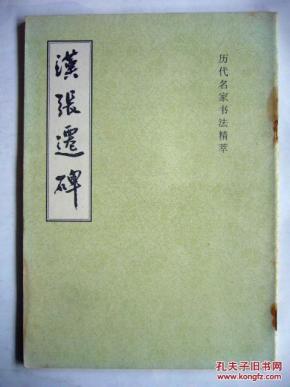 漢張遷碑
历代名家书法精萃
孔夫子旧书网